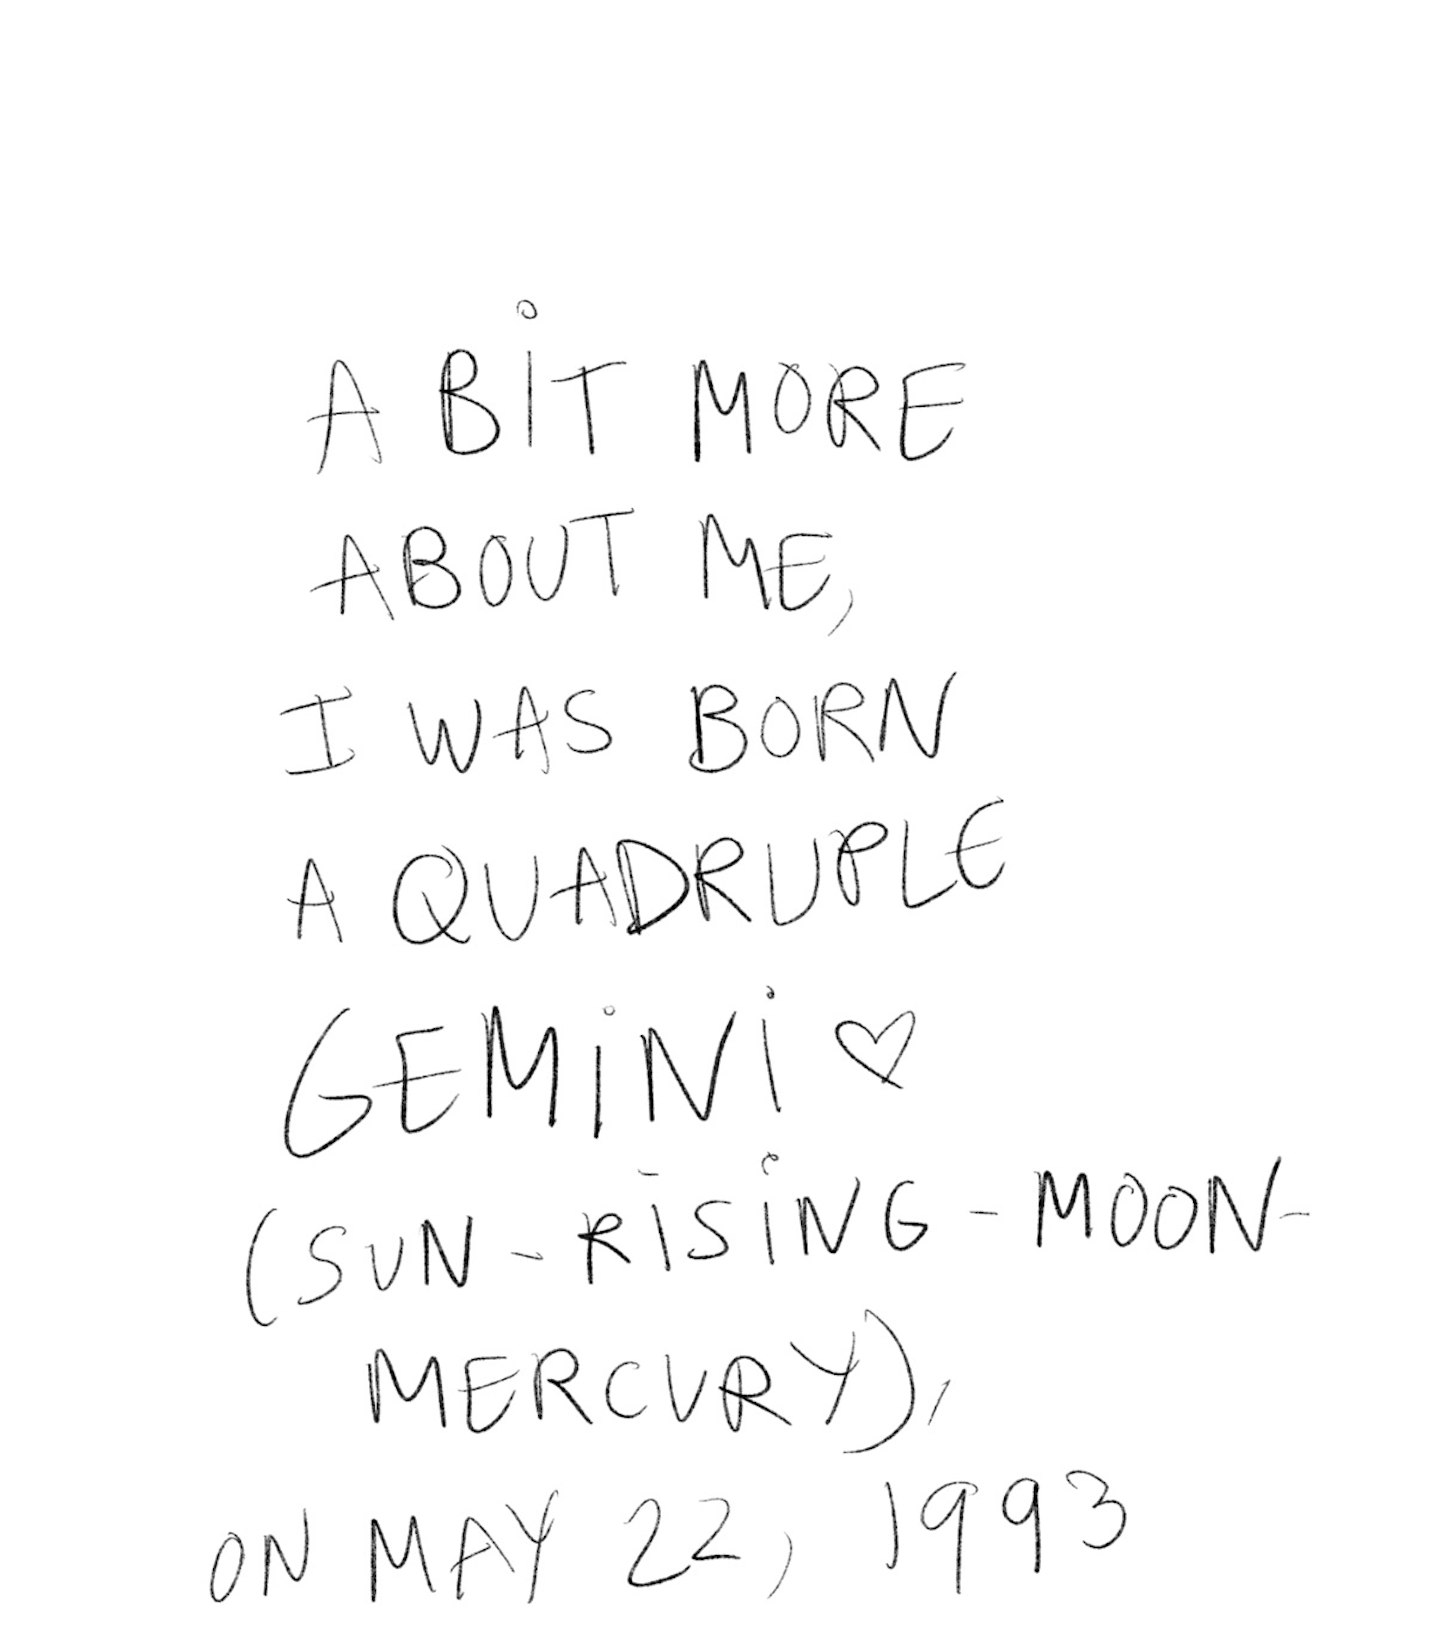 A BiT MORE
ABOUT ME,
I WAS BORN
A QUADRUPLE
GEMiNi ♡
(SUN - RiSiNG - MOON -
MERCURY),
ON MAY 22, 1993